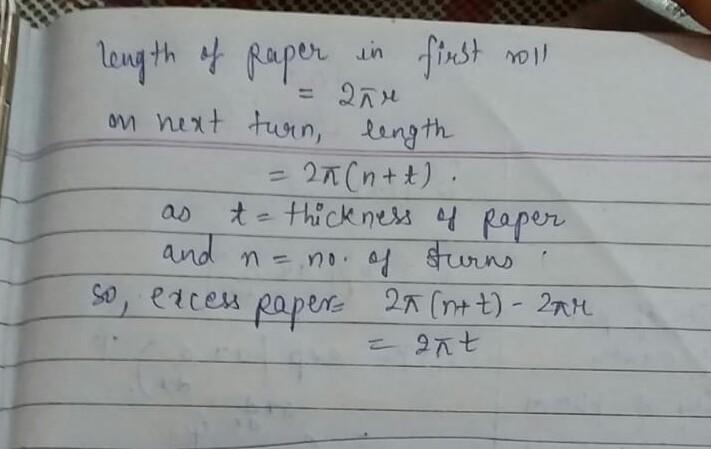 length of paper in first roll
= 2πr
on next turn, length
= 2π(n+t).
as t = thickness of paper
and n = no. of turns
so, excess paper = 2π(n+t) - 2πr
= 2πt